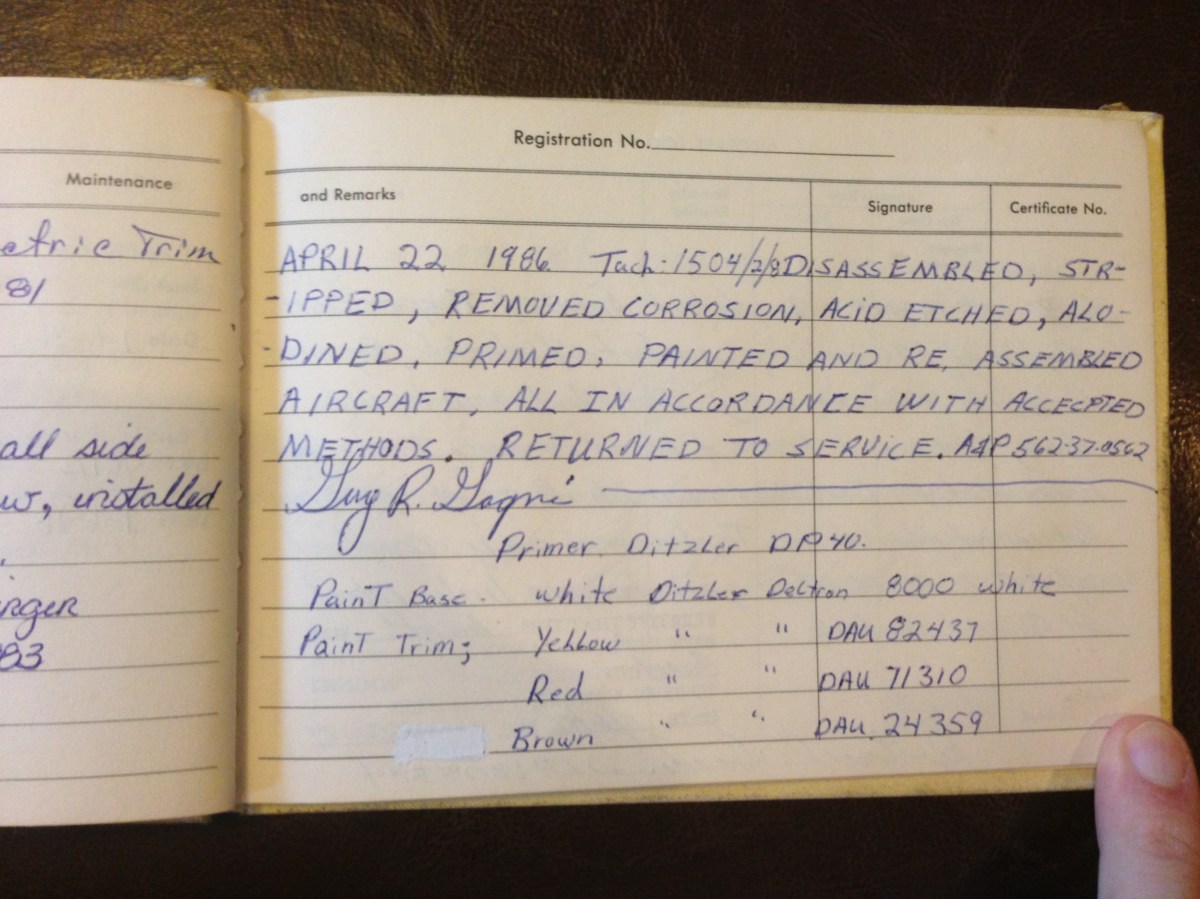 Registration No.
Maintenance
and Remarks
Signature
Certificate No.
etric Trim
81
all side
w, installed
rger
83
APRIL 22 1986 Tach: 1504/2/8 DISASSEMBLED, STR-
-IPPED, REMOVED CORROSION, ACID ETCHED, ALO-
-DINED, PRIMED, PAINTED AND RE, ASSEMBLED
AIRCRAFT, ALL IN ACCORDANCE WITH ACCECPTED
METHODS. RETURNED TO SERVICE. A&P 562-37-0562
Guy R. Gagni
Primer. Ditzler DP40.
Paint Base. White Ditzler Deltron 8000 white
Paint Trim; Yehbow " " DAU 82437
Red " " DAU 71310
Brown " " DAU. 24359